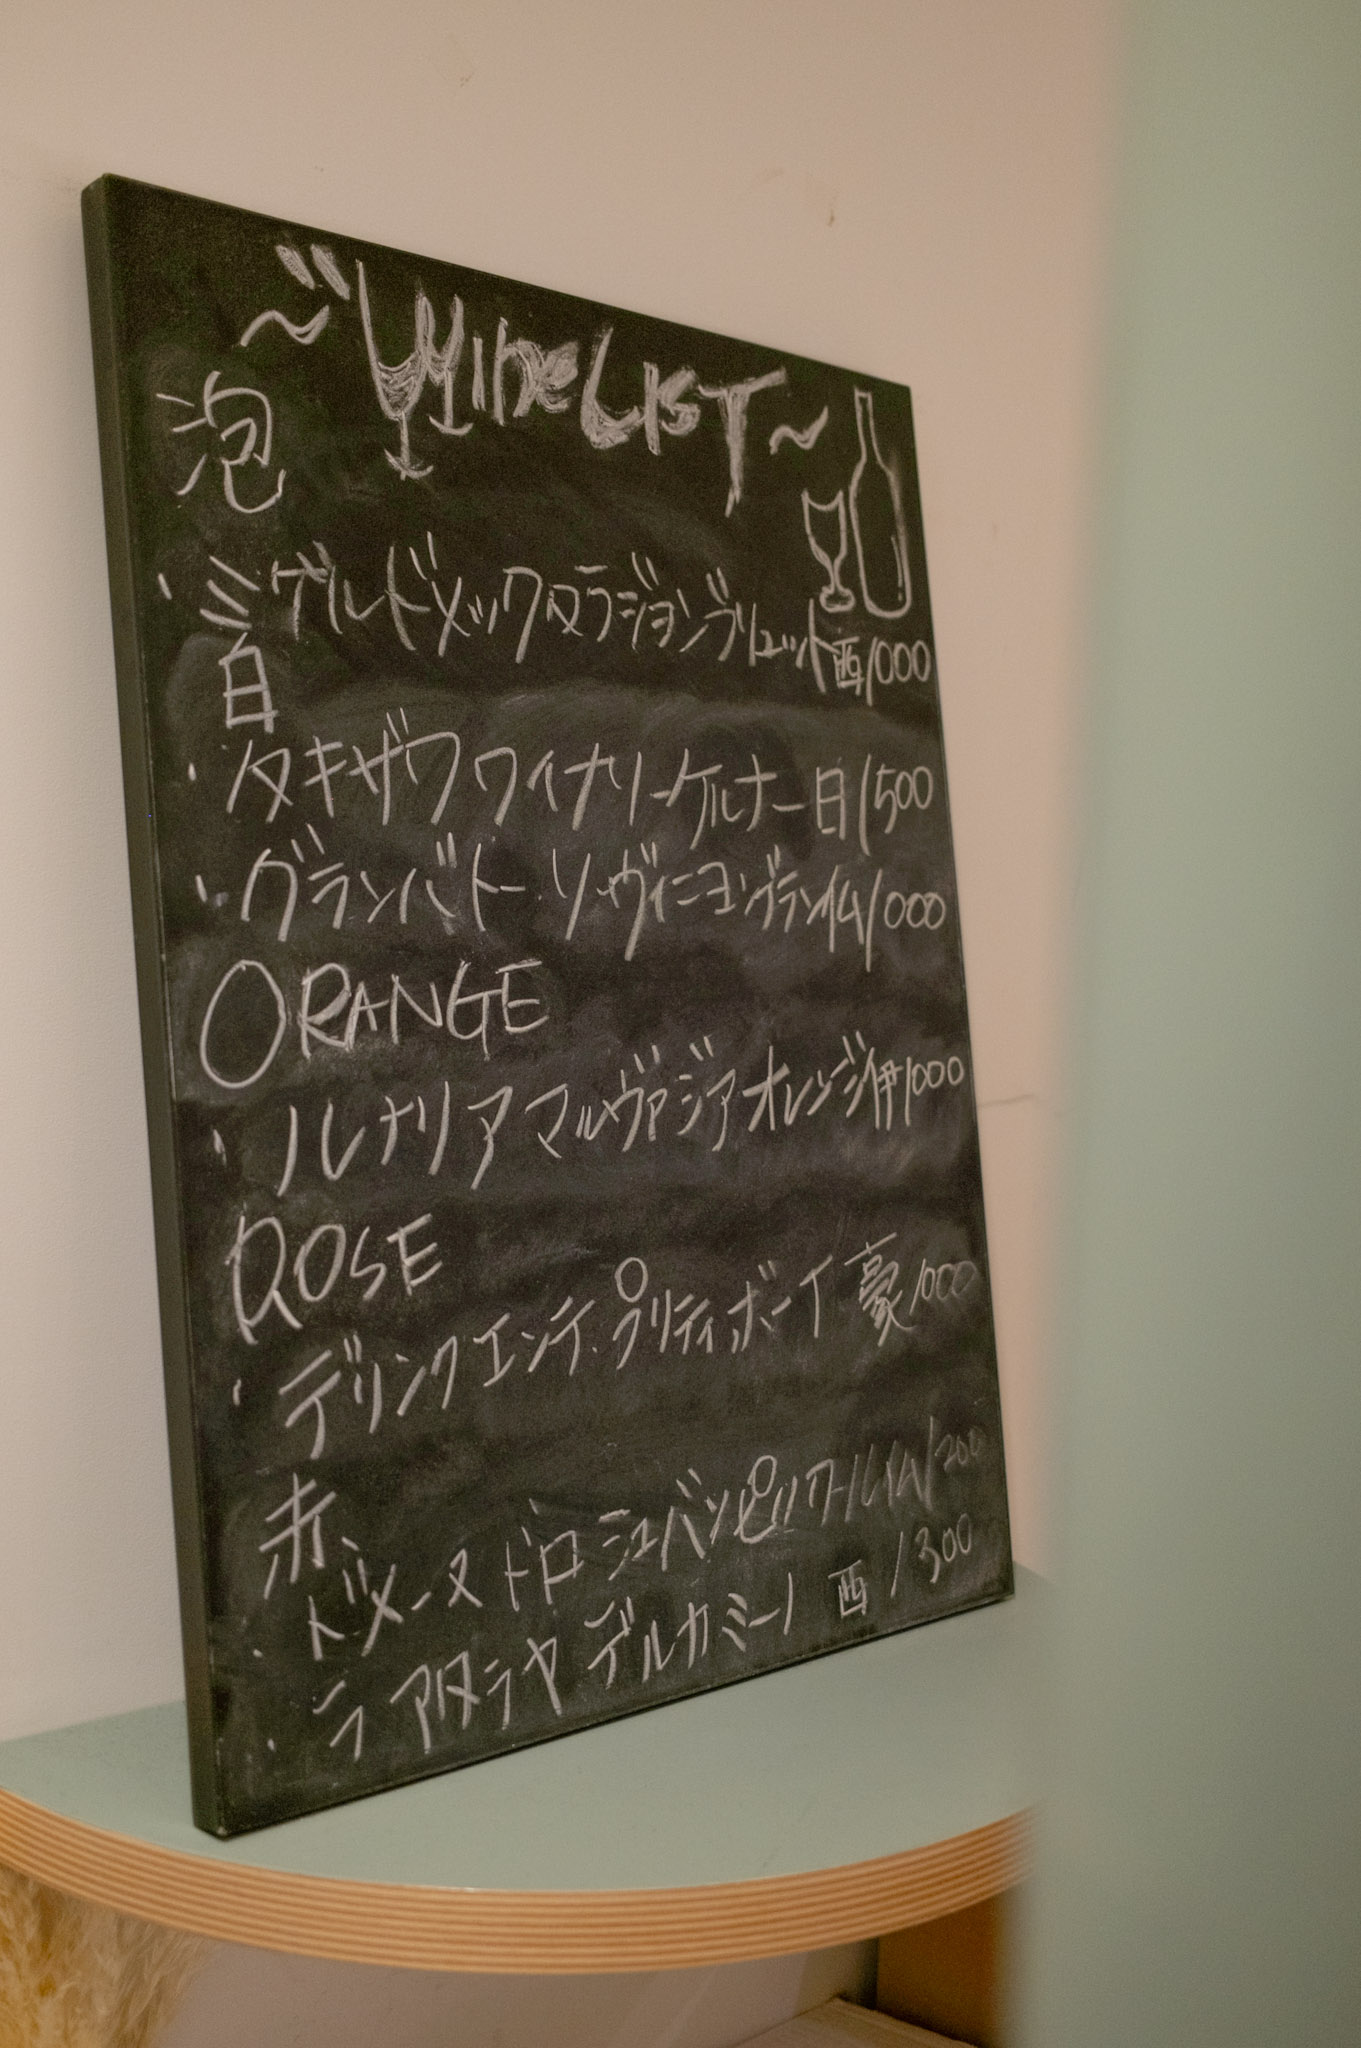 ~WineLIST~
泡
・ミゲルドメックマラジョンブリュット西/1000
白
・タキザワワイナリーケルナー日/1500
・グランバトー.ソーヴィニヨングラン仏/1000
ORANGE
・ルナリア マルヴァジアオレンジ伊/1000
ROSE
・デリンクエンテ.プリティボーイ 豪/1000
赤
・ドメーヌ ドロ シュバン 仏/1200
・ラ アタラヤ デルカミーノ 西 /1300